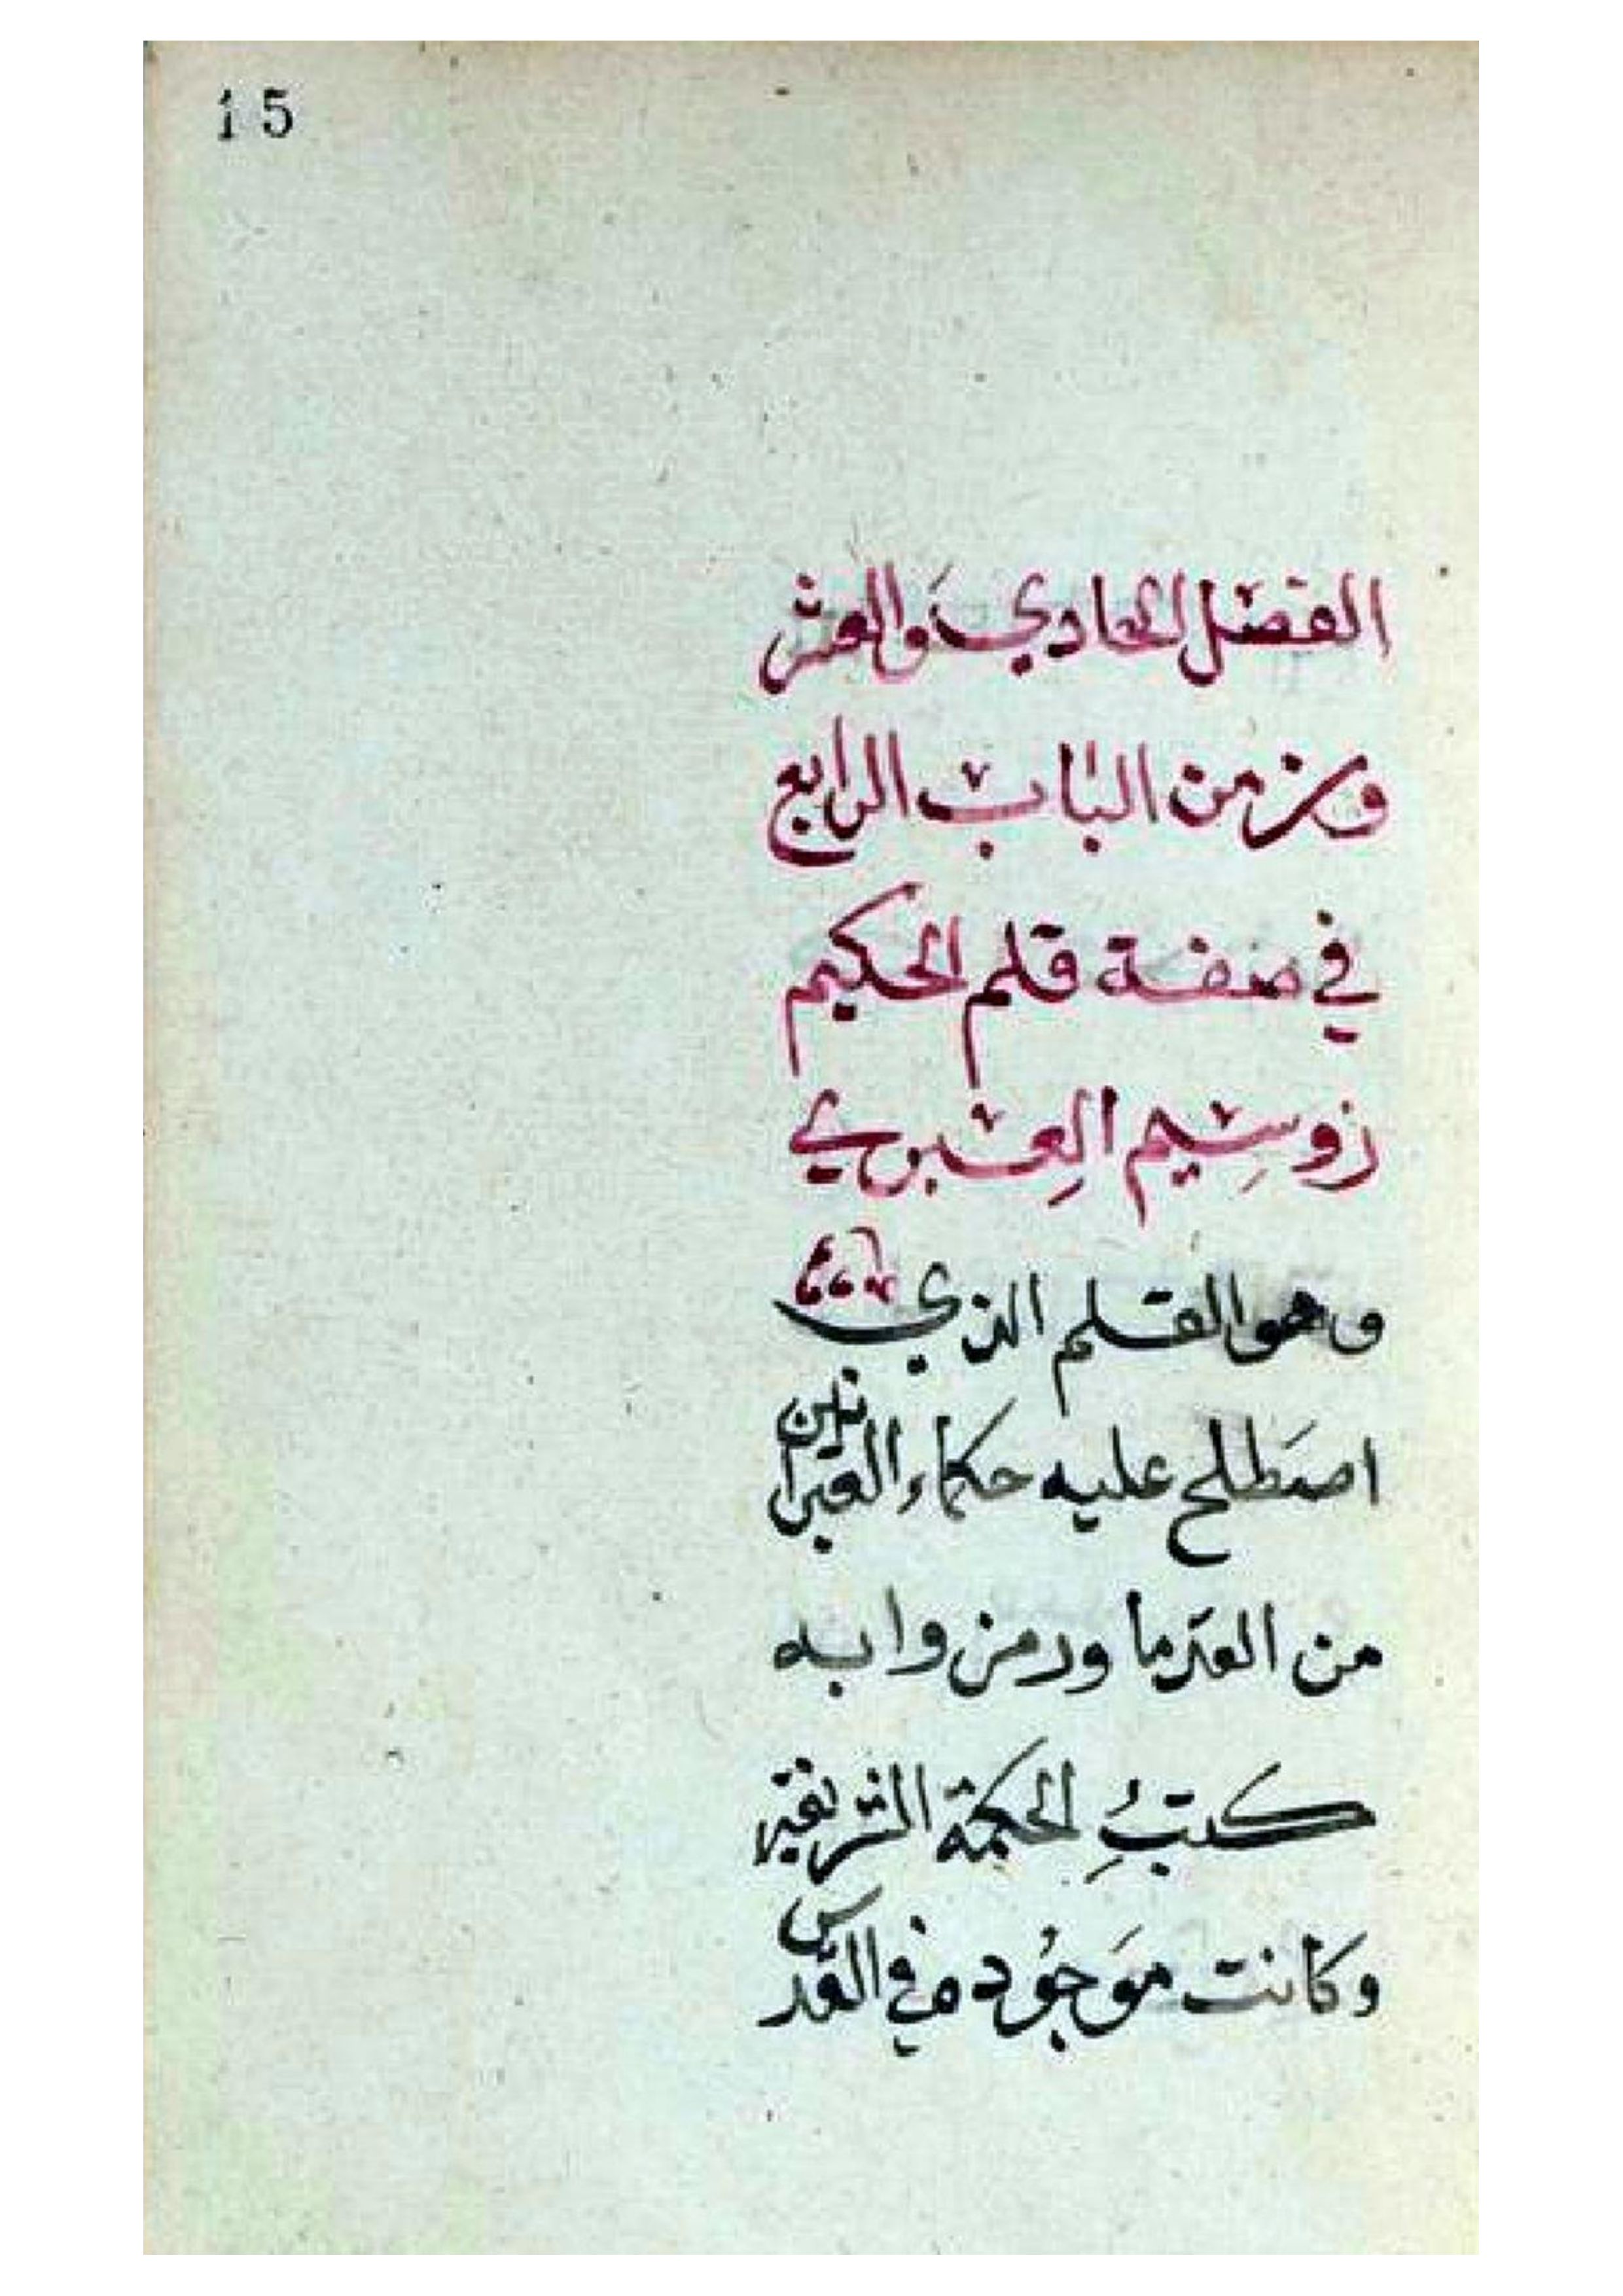 15
الفصل الحادي والعشر
ون من الباب الرابع
في صفة قلم الحكيم
زوسيم العبري
وهو القلم الذي
اصطلح عليه حكماء العبرانين
من القدما ورمزوا به
كتب الحكمة الشريفة
وكانت موجود في القدس